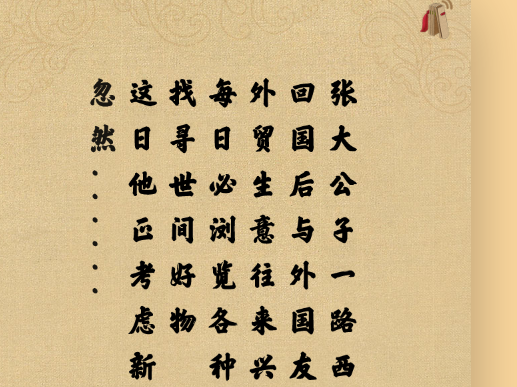 张大公子一路西
回国后与外国友
外贸生意往来兴
每日必浏览各种
找寻世间好物
这日他正考虑新
忽然......